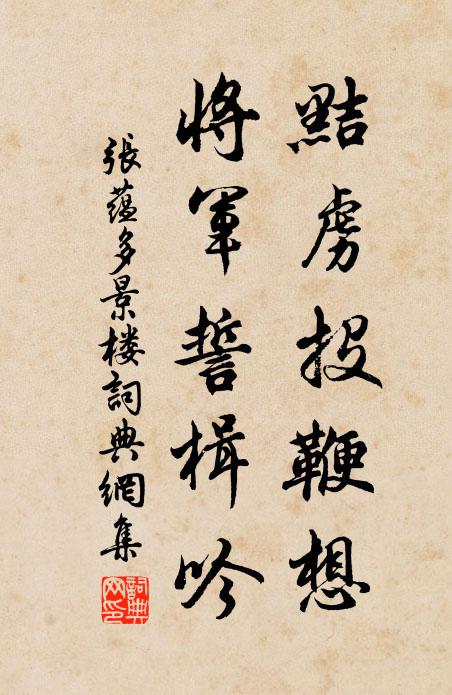 黠虜投鞭想
將軍誓楫吟
張蘊多景楼詞典網集
詞典網印